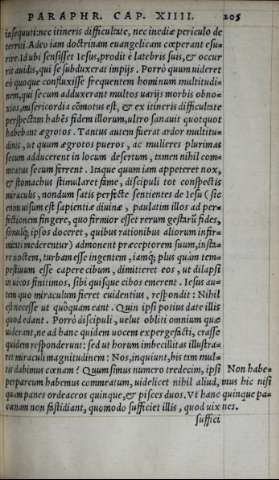 PARAPHR. CAP. XIIII. 205
insequuti: nec itineris difficultate, nec inediæ periculo de
territi. Adeo iam doctrinam euangelicam cœperant esu-
rire. Id ubi sensisset Iesus, prodit e latebris suis, & occur
rit auidis, qui se subduxerat impijs. Porrò quum uideret
eò quoque confluxisse frequentem hominum multitudi-
nem, qui secum adduxerant multos uarijs morbis obno-
xios, misericordia cōmotus est, & ex itineris difficultate
perspectam habēs fidem illorum, ultro sanauit quotquot
habebant ægrotos. Tantus autem fuerat ardor multitu-
dinis, ut quum ægrotos pueros, ac mulieres plurimas
secum adducerent in locum desertum, tamen nihil com-
meatus secum ferrent. Itaque quum iam appeteret nox,
& stomachus stimularet fame, discipuli tot conspectis
miraculis, nondum satis perfectè sentientes de Iesu (sic
enim uisum est sapientiæ diuinæ, paulatim illos ad per-
fectionem fingere, quo firmior esset rerum gestarū fides,
simulq; ipsos doceret, quibus rationibus aliorum infir-
mitati mederentur) admonent præceptorem suum, insta-
re noctem, turbam esse ingentem, iamq; plus quàm tem-
pestiuum esse capere cibum, dimitteret eos, ut dilapsi
in uicos finitimos, sibi quisque cibos emerent. Iesus au-
tem quo miraculum fieret euidentius, respondit: Nihil
est necesse ut quòquam eant. Quin ipsi potius date illis
quod edant. Porrò discipuli, uelut obliti omnium quæ
uiderant, ne ad hanc quidem uocem expergefacti, crasse
quidem responderunt: sed ut horum imbecillitas illustra-
ret miraculi magnitudinem: Nos, inquiunt, his tam mul-
tis dabimus cœnam? Quum simus numero tredecim, ipsi
perparcum habemus commeatum, uidelicet nihil aliud,
quàm panes ordeaceos quinque, & pisces duos. Vt hanc
cœnam non fastidiant, quomodo sufficiet illis, quod uix
suffici
Non habe-
mus hic nisi
quinque pa-
nes.